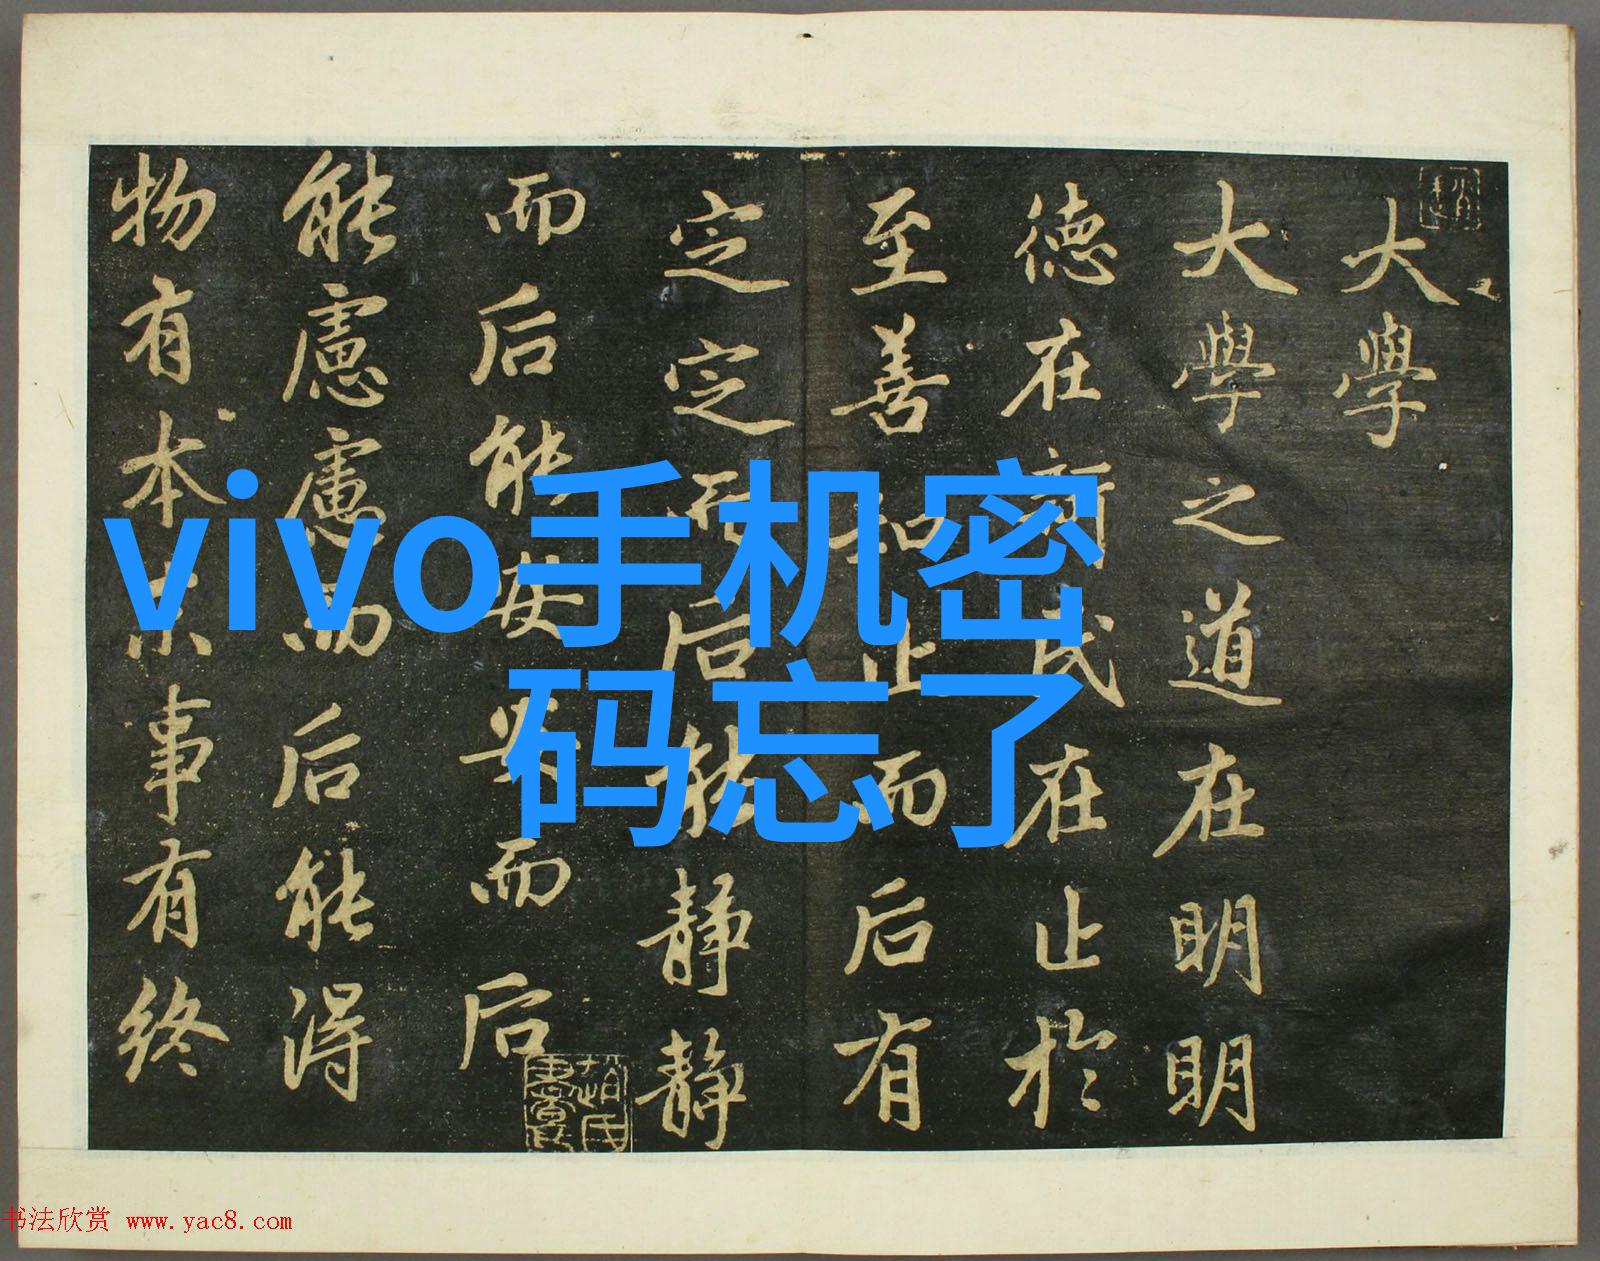 vivo手机密
码忘了
大學
大學之道在明明
德在新民在止於
至善知止而后有
定定而后能静静
而后能安安而后
能慮慮而后能得
物有本末事有終
书法欣赏 www.yac8.com